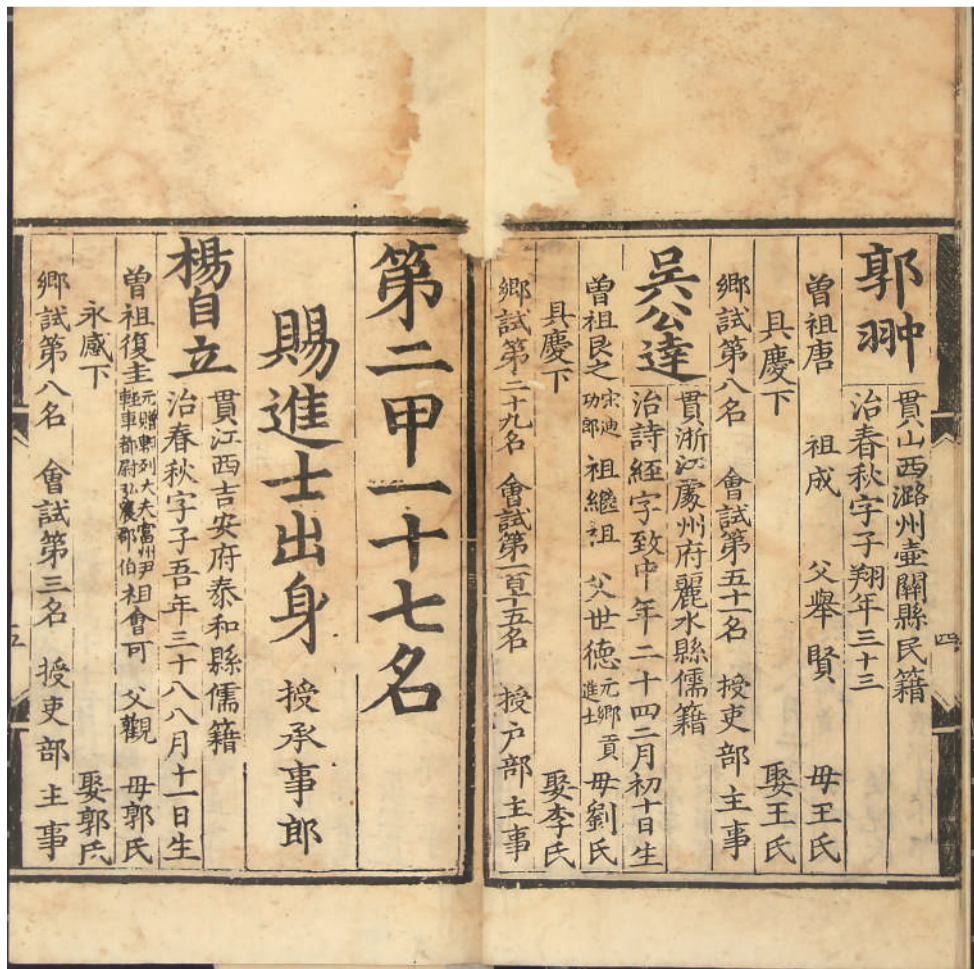 郭翀
貫山西潞州壺關縣民籍
治春秋字子翔年三十三
曽祖唐 祖成 父舉賢 母王氏
具慶下 娶王氏
鄉試第八名 㑹試第五十一名 授吏部主事
吳公達
貫浙江處州府麗水縣儒籍
治詩經字致中年二十四二月初十日生
曽祖艮之 宋迪功郎 祖繼祖 父世德 元鄉貢進士 母劉氏
具慶下 娶李氏
鄉試第二十九名 㑹試第一百十五名 授户部主事
四
第二甲一十七名
賜進士出身 授承事郎
楊自立
貫江西吉安府泰和縣儒籍
治春秋字子吾年三十八八月十一日生
曽祖復圭 元贈朝列大夫富州尹輕車都尉弘農郡伯 祖會可 父觀 母郭氏
永感下 娶郭氏
鄉試第八名 會試第三名 授吏部主事
五